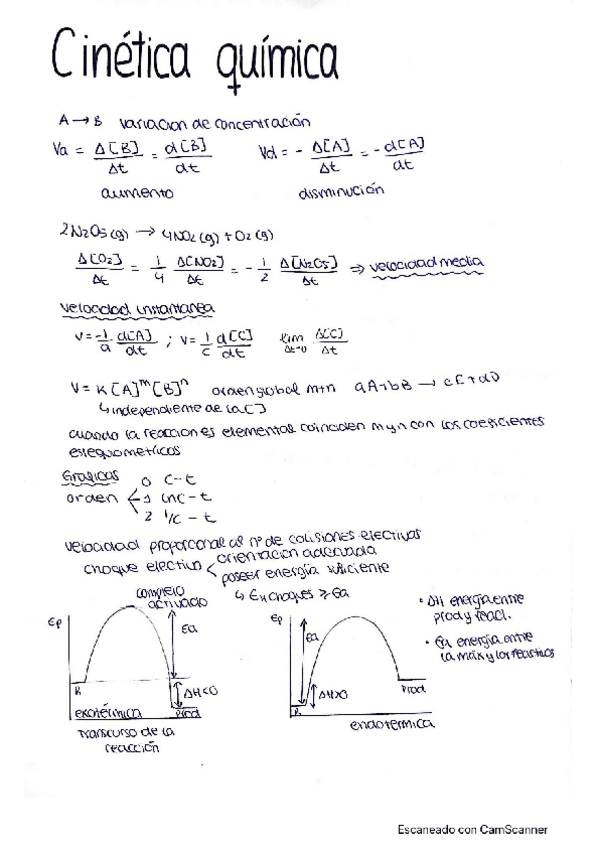 Cinética química
A → B variacion de concentración
Va = Δ[B]/Δt = d[B]/dt    Vd = - Δ[A]/Δt = - d[A]/dt
aumento    disminución
2N2O5(g) → 4NO2(g) + O2(g)
Δ[O2]/Δt = 1/4 Δ[NO2]/Δt = - 1/2 Δ[N2O5]/Δt ⇒ velocidad media
velocidad instantanea
V = -1/a d[A]/dt ; V = 1/c d[C]/dt    lim Δt→0 Δ[C]/Δt
V = K[A]^m [B]^n    orden global m+n    aA+bB → cC+dD
↳ independiente de la [ ]
cuando la reaccion es elemental coinciden m y n con los coeficientes
estequiometricos
Graficas    0    C-t
orden    1    lnC-t
2    1/C - t
velocidad proporcional al nº de colisiones efectivas
choque efectivo    orientacion adecuada
poseer energía suficiente
↳ Ek choques ≥ Ea
complejo
activado
Ep    Ea    R    ΔH<0    Prod
exotérmica
Transcurso de la
reacción
Ep    Ea    R    ΔH>0    Prod
endotermica
• ΔH energía entre
prod y react.
• Ea energía entre
la max y los reactivos
Escaneado con CamScanner